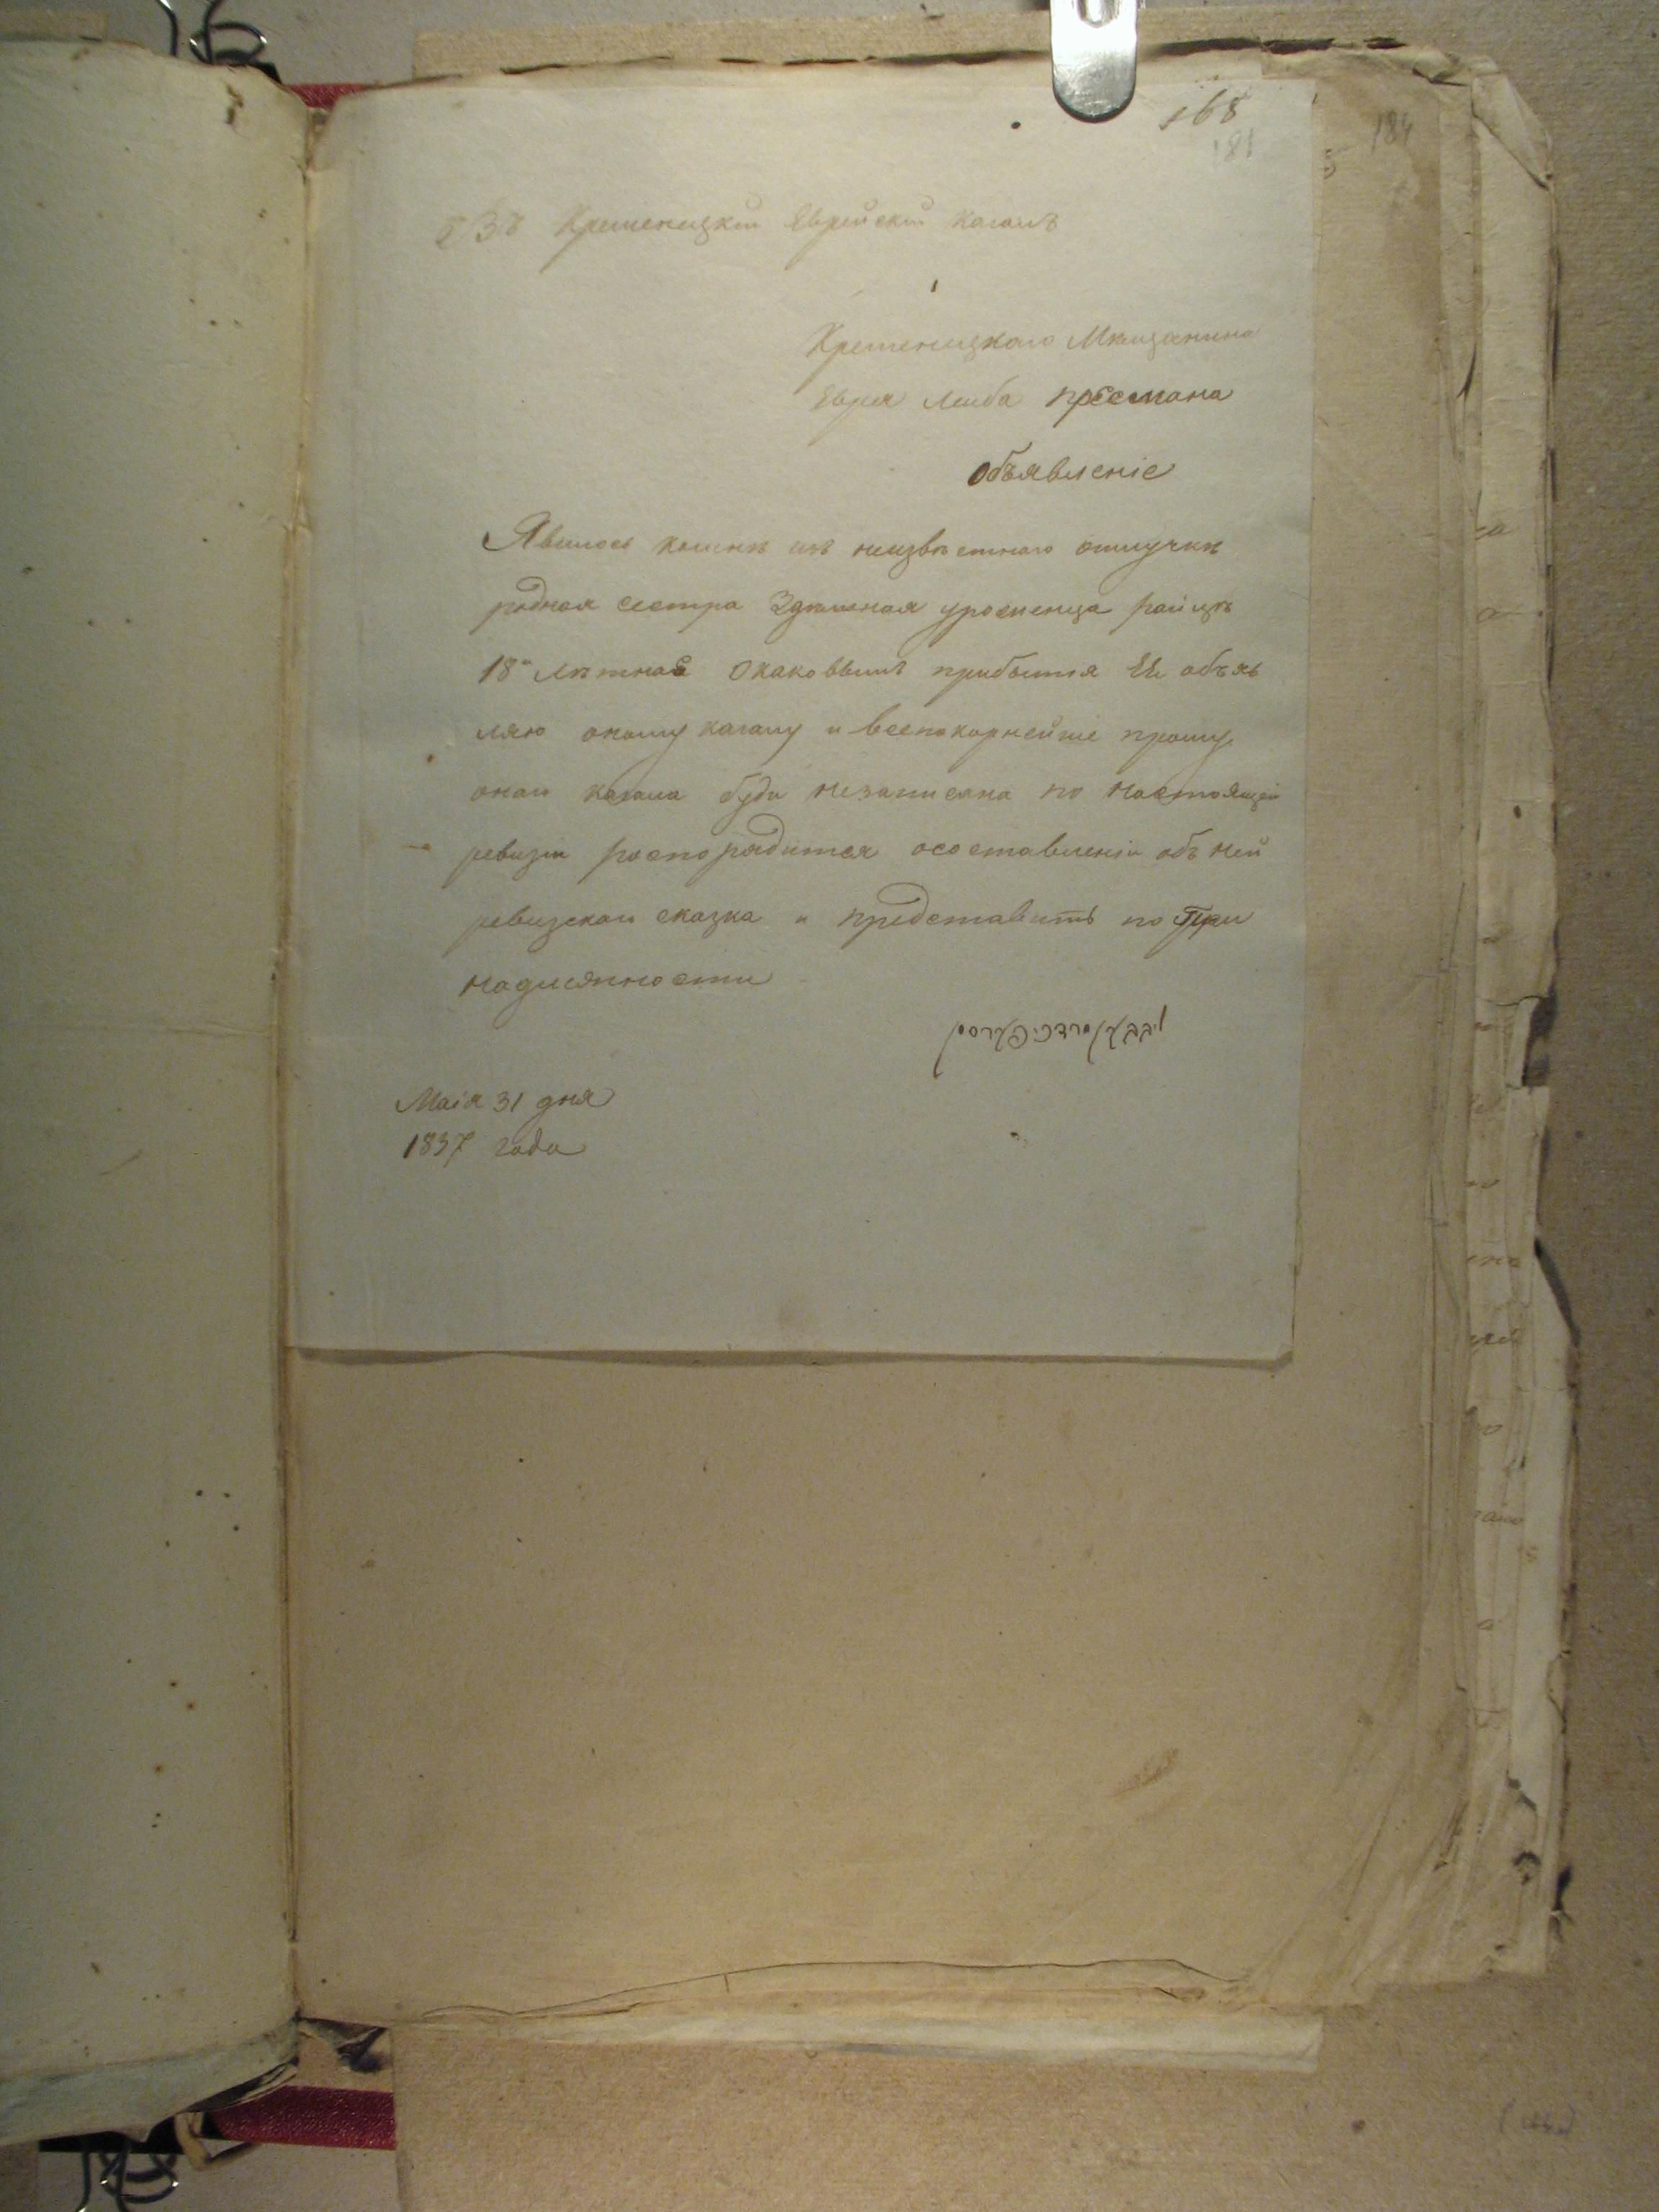 168
181
184
Въ Кременецкій Еврейскій Кагалъ
Кременецкого Мѣщанина
Еврея Лейба Пресмана
Объявленіе
Явилось комнѣ изъ неизвѣстного отлучкѣ
родная сестра Здѣшная уроженца Райцѣ
18 лѣтная Окаковымъ прибытія Ея объяв
ляю оному кагалу и всепокорнейше прошу
оного кагала буди незаписана по настоящей
ревизіи роспорядится осоставленіи объ ней
ревизскои сказка и представить по При
надлежности
Маія 31 дня
1837 года